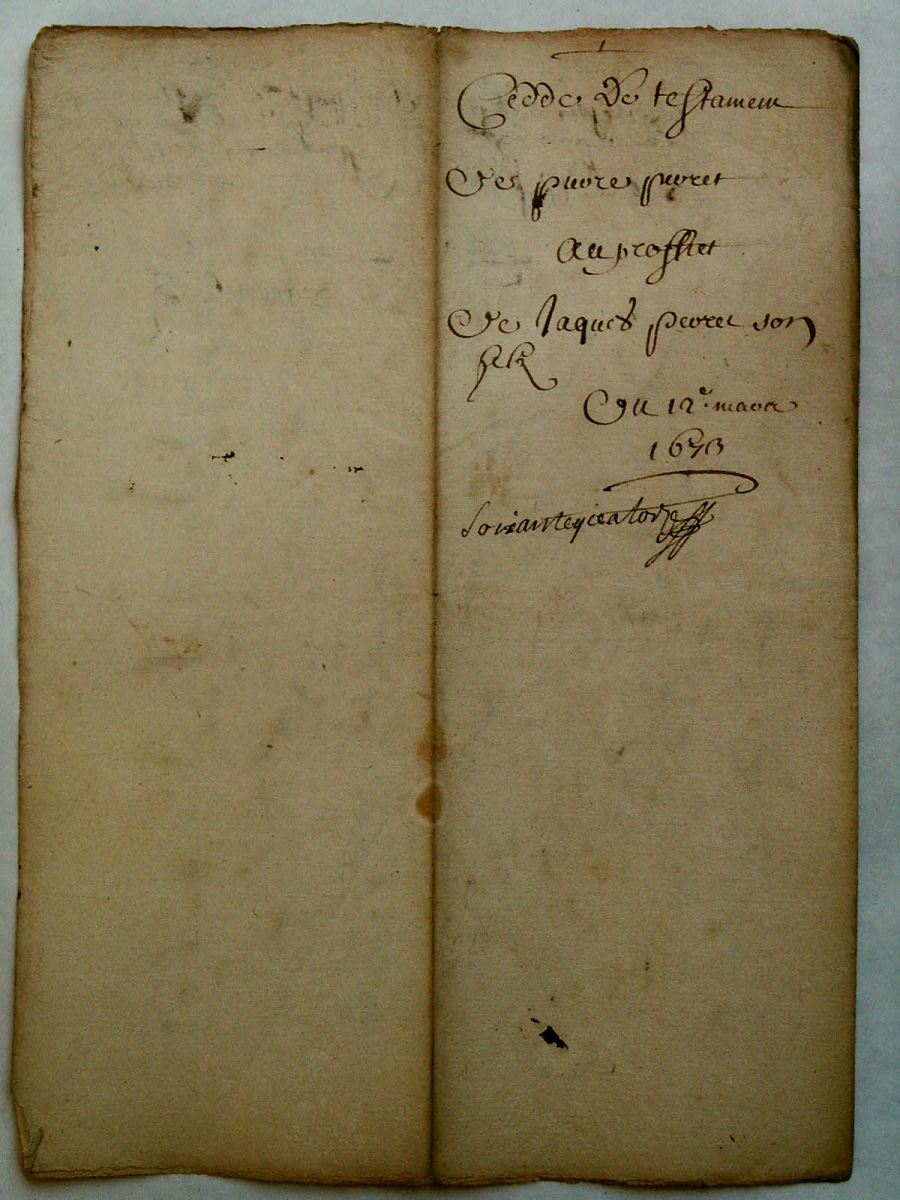 Cedde de testament
De piuore piuoret
Au proffiet
De Jaques peoret son
filz
Du 12e mars
1673
Soixantequatorze